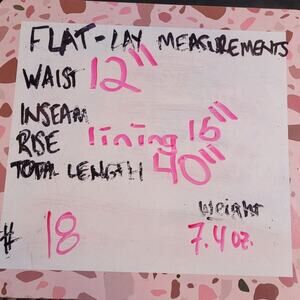 FLAT-LAY MEASUREMENTS
WAIST 12"
INSEAM
RISE lining 16"
TOTAL LENGTH 40"
WEIGHT
# 18 7.4 oz.